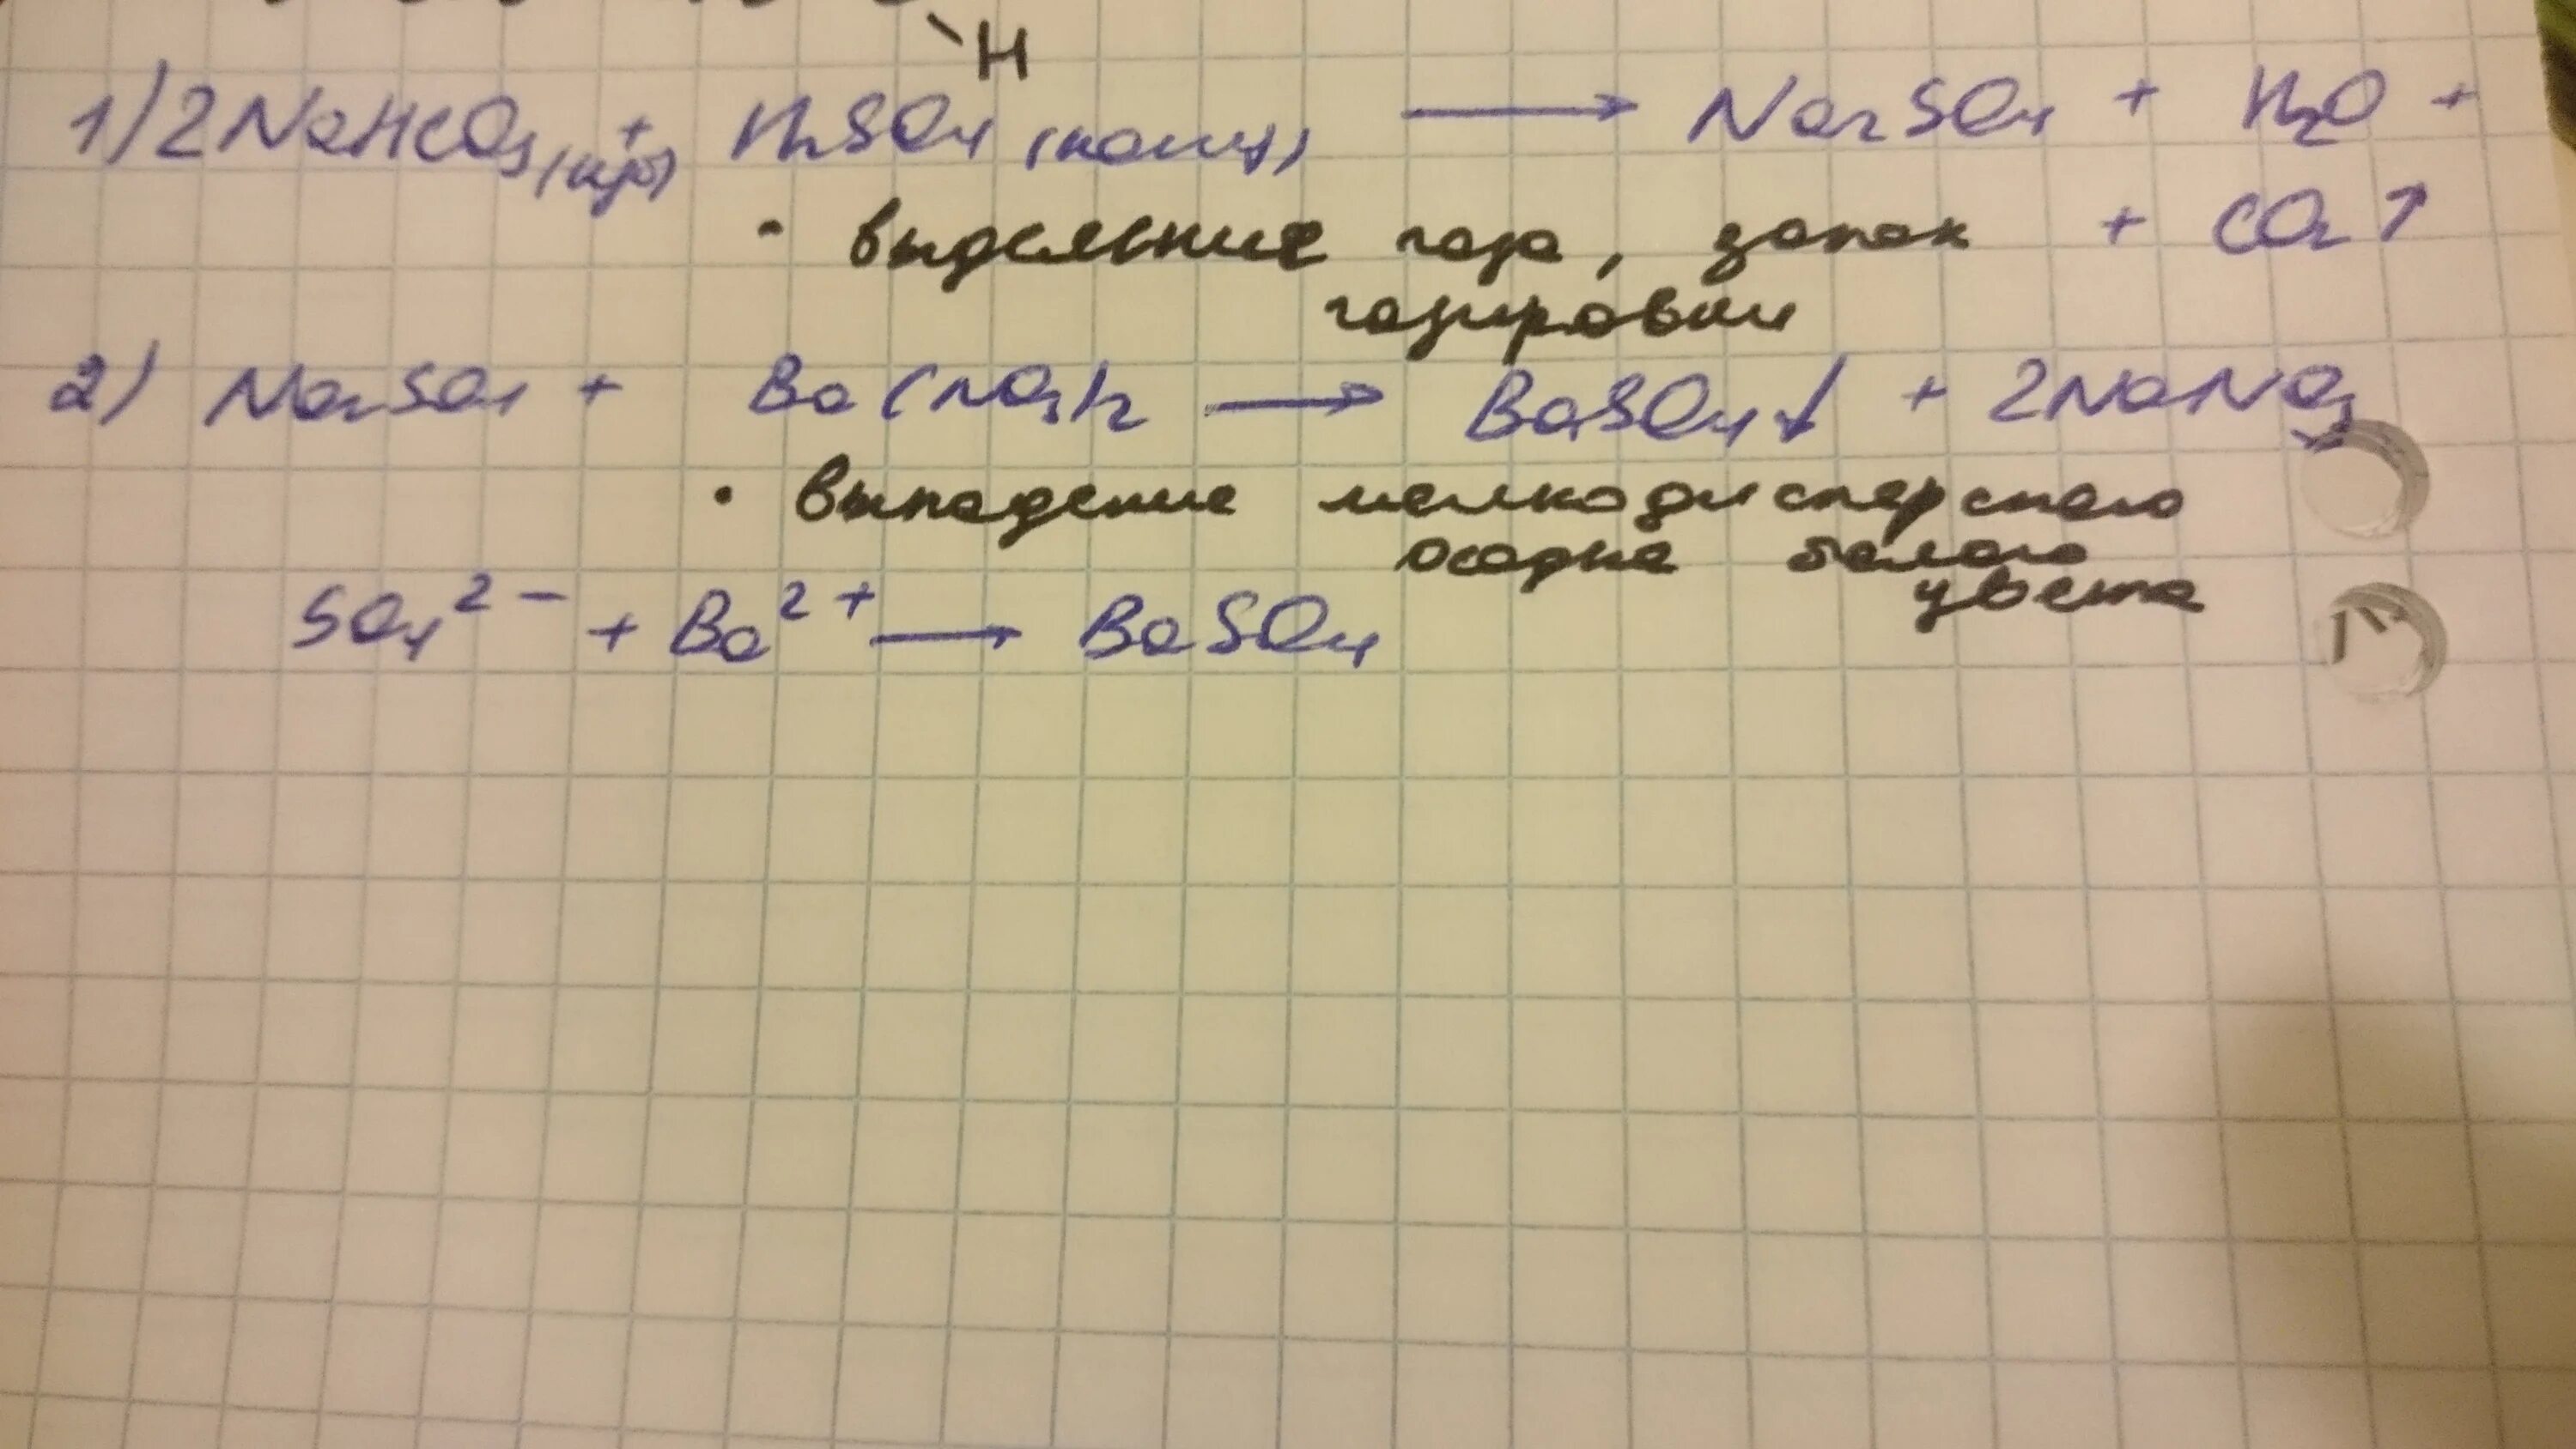 H
1) 2NaHCO₃(кр) + H₂SO₄ (конц) ⟶ Na₂SO₄ + H₂O +
+ CO₂ ↑
• выделение газа, запах
газировки
2) Na₂SO₄ + Ba(NO₃)₂ ⟶ BaSO₄↓ + 2NaNO₃
• выпадение мелкодисперсного
осадка белого
цвета
SO₄²⁻ + Ba²⁺ ⟶ BaSO₄